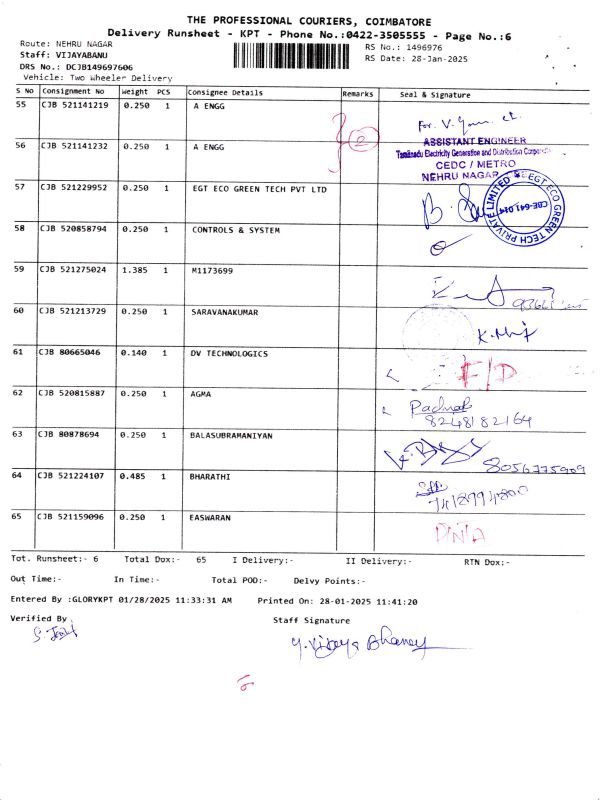 THE PROFESSIONAL COURIERS, COIMBATORE
Delivery Runsheet - KPT - Phone No.:0422-3505555 - Page No.:6
Route: NEHRU NAGAR RS No.: 1496976
Staff: VIJAYABANU RS Date: 28-Jan-2025
DRS No.: DCJB149697606
Vehicle: Two Wheeler Delivery
S No Consignment No Weight PCS Consignee Details Remarks Seal & Signature
55 CJB 521141219 0.250 1 A ENGG
For.
2
56 CJB 521141232 0.250 1 A ENGG
ASSISTANT ENGINEER
Tamilnadu Electricity Generation and Distribution Corporation
CEDC / METRO
NEHRU NAGAR
57 CJB 521229952 0.250 1 EGT ECO GREEN TECH PVT LTD
EGT ECO GREEN TECH PRIVATE LIMITED
CBE-641 014
58 CJB 520858794 0.250 1 CONTROLS & SYSTEM
59 CJB 521275024 1.385 1 M1173699
60 CJB 521213729 0.250 1 SARAVANAKUMAR
61 CJB 80665046 0.140 1 DV TECHNOLOGICS
F/D
62 CJB 520815887 0.250 1 AGMA
8248182164
63 CJB 80878694 0.250 1 BALASUBRAMANIYAN
8056775909
64 CJB 521224107 0.485 1 BHARATHI
65 CJB 521159096 0.250 1 EASWARAN
Tot. Runsheet:- 6 Total Dox:- 65 I Delivery:- II Delivery:- RTN Dox:-
Out Time:- In Time:- Total POD:- Delvy Points:-
Entered By :GLORYKPT 01/28/2025 11:33:31 AM Printed On: 28-01-2025 11:41:20
Verified By Staff Signature